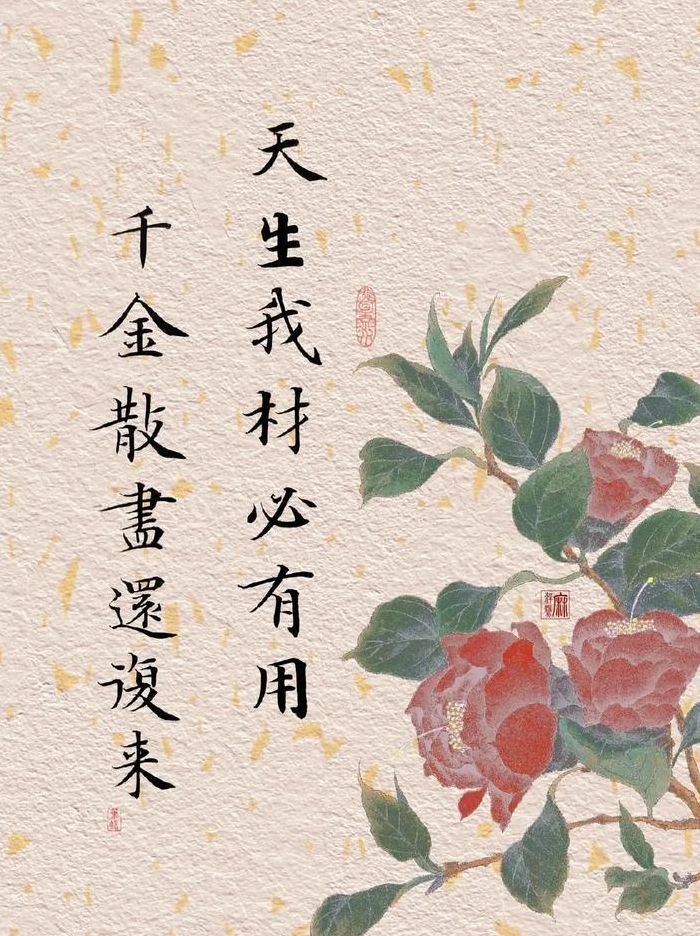 天生我材必有用
千金散盡還復来